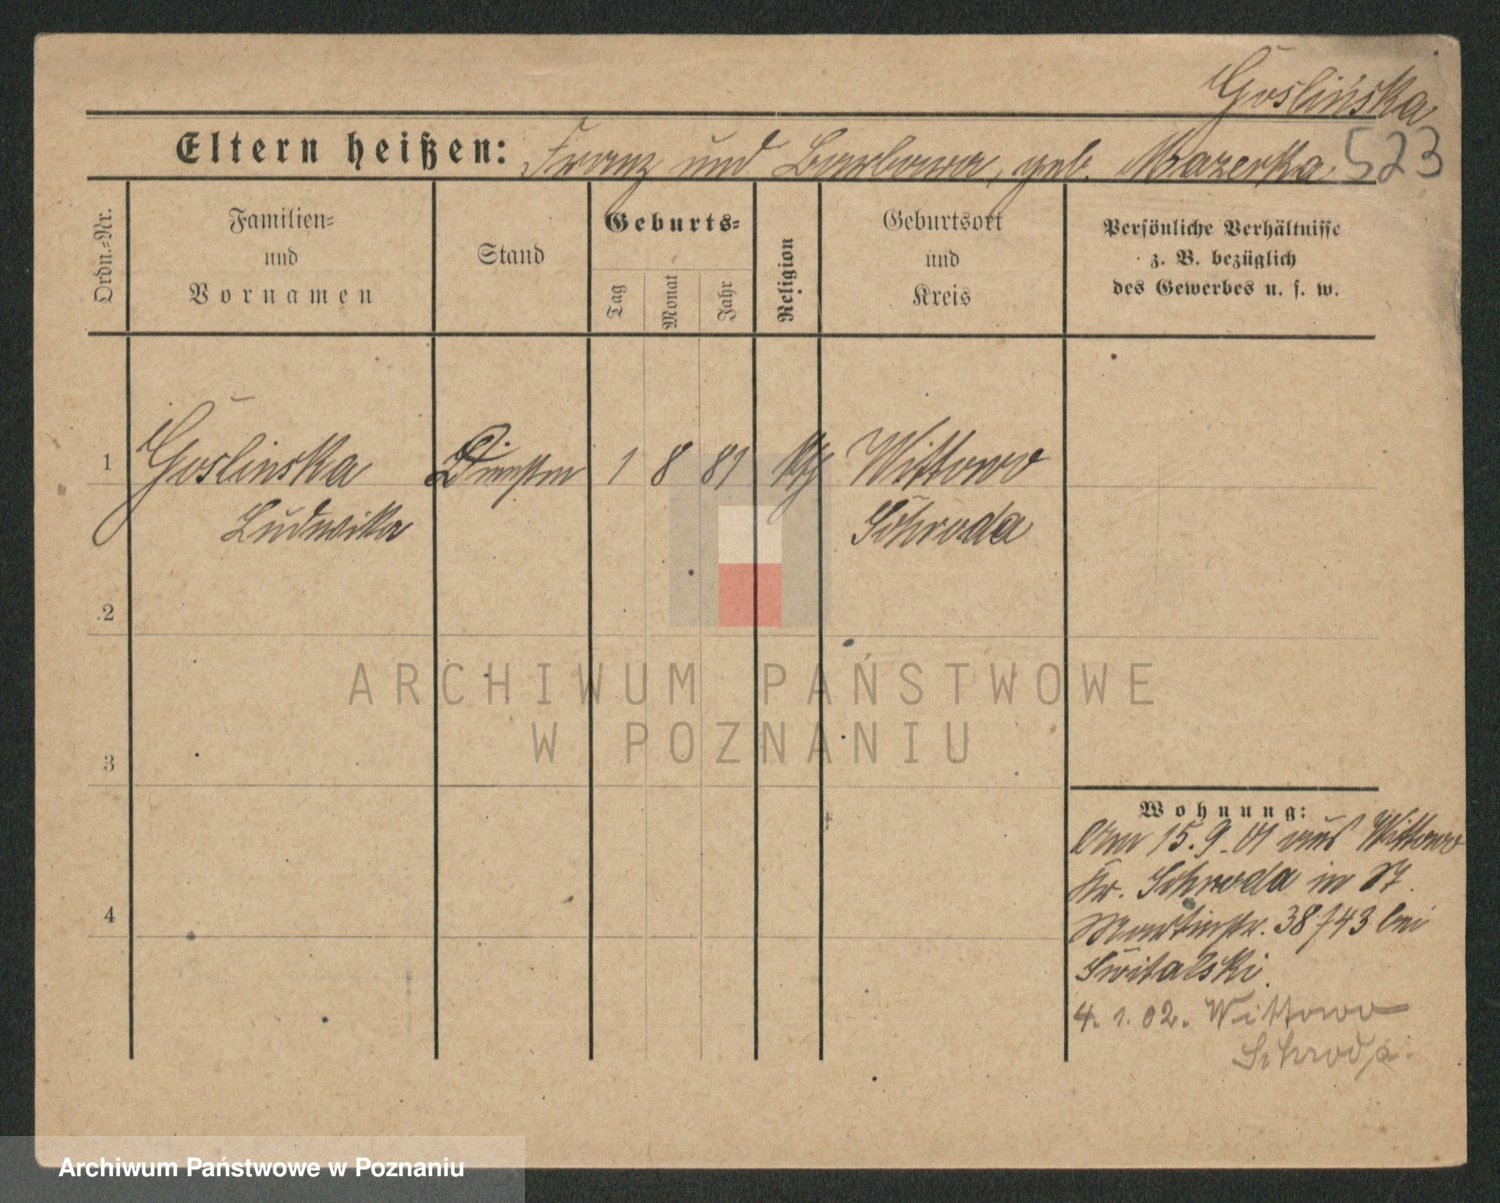 Goslińska
523
Eltern heißen: Franz und Barbara, geb. Mazerka
Ordn.=Nr.
Familien=
und
Vornamen
Stand
Geburts=
Tag
Monat
Jahr
Religion
Geburtsort
und
Kreis
Persönliche Verhältnisse
z. B. bezüglich
des Gewerbes u. s. w.
1 Goslinska 1 8 81 kth Wittowo
Ludwika Schroda
2
3
4
Wohnung:
Am 15.9.01 aus Wittowo
Kr. Schroda in St.
Martinstr. 38/43 bei
Switalski.
4. 1. 02. Wittowo
Schroda.
ARCHIWUM PAŃSTWOWE
W POZNANIU
Archiwum Państwowe w Poznaniu